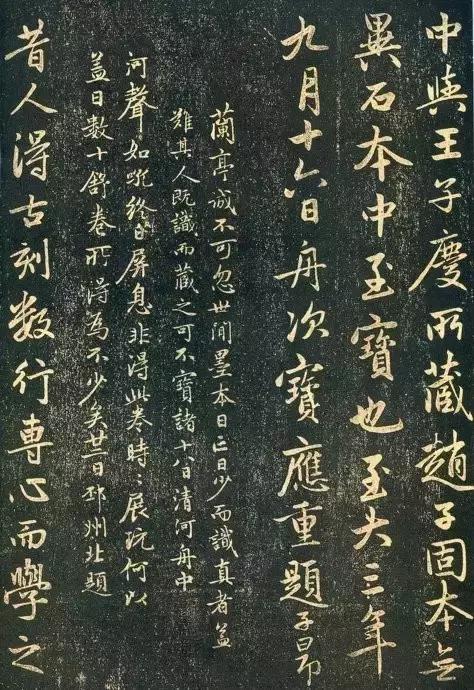 中與王子慶所藏趙子固本无
異石本中至寶也至大三年
九月十六日舟次寶應重題子昂
蘭亭誠不可忽世間墨本日亡日少而識真者益
難其人既識而藏之可不寶諸十八日清河舟中
河聲如吼終日屏息非得此卷時〻展玩何以
盖日數十舒卷所得為不少矣廿二日邳州北題
昔人得古刻數行専心而學之